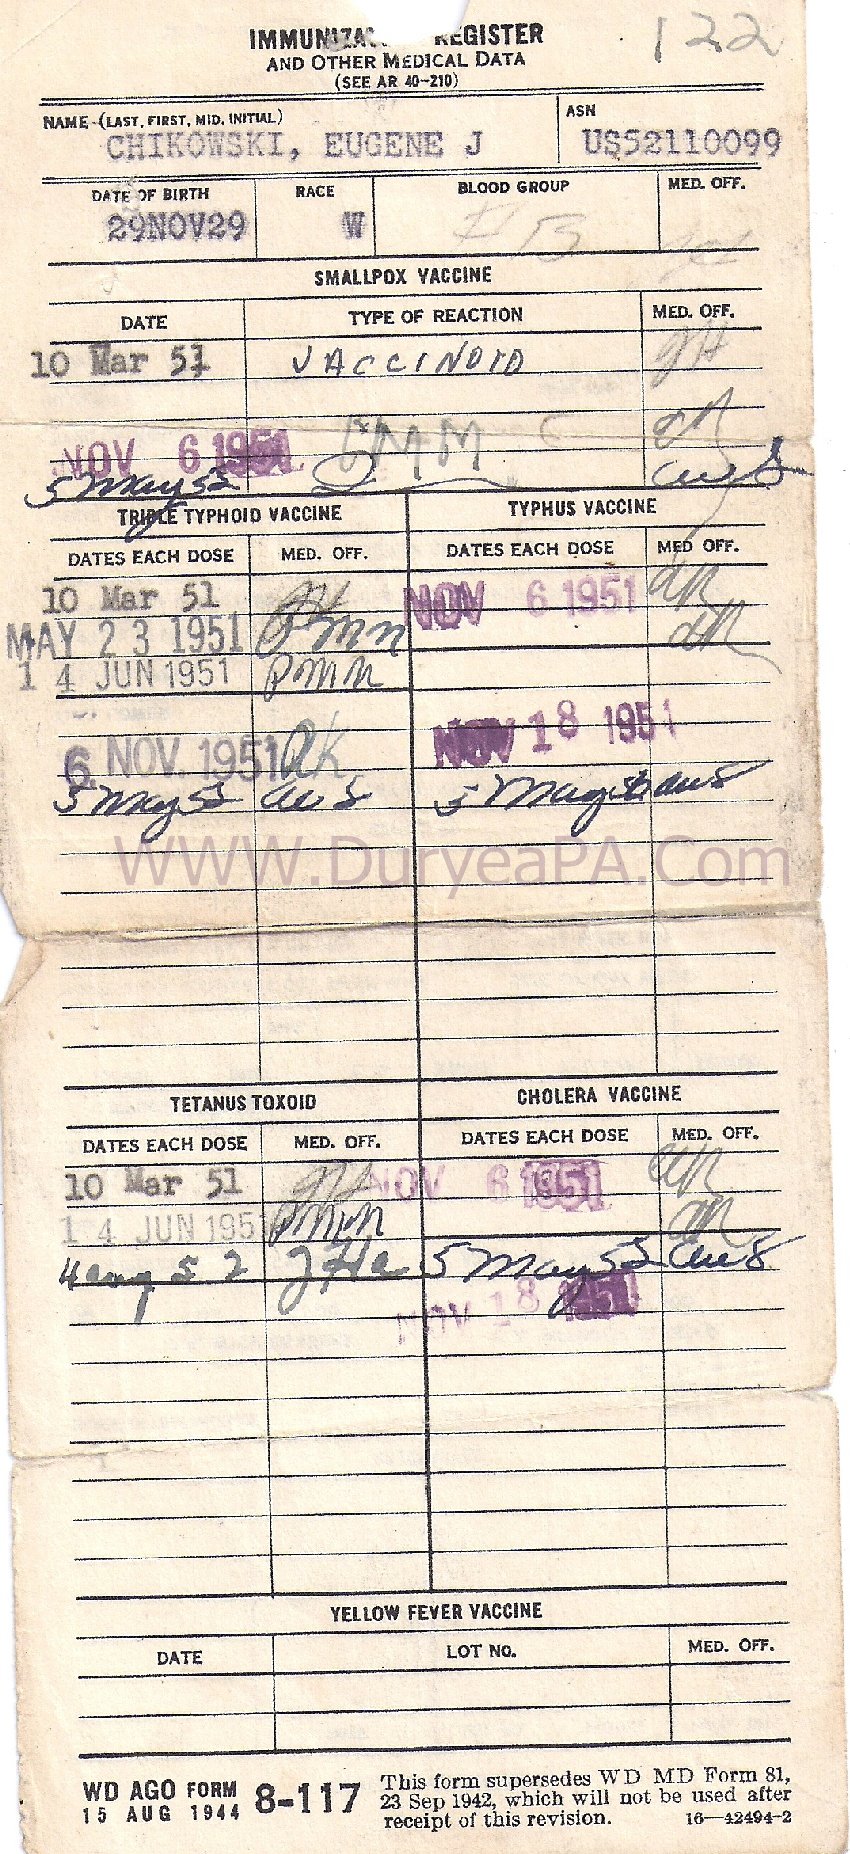 122
IMMUNIZA REGISTER
AND OTHER MEDICAL DATA
(SEE AR 40-210)
NAME-(LAST, FIRST, MID. INITIAL) ASN
CHIKOWSKI, EUGENE J US52110099
DATE OF BIRTH RACE BLOOD GROUP MED. OFF.
29NOV29 W B
SMALLPOX VACCINE
DATE TYPE OF REACTION MED. OFF.
10 Mar 51 VACCINOID
NOV 6 1951 IMM
5 May 52
TRIPLE TYPHOID VACCINE TYPHUS VACCINE
DATES EACH DOSE MED. OFF. DATES EACH DOSE MED OFF.
10 Mar 51 NOV 6 1951
MAY 23 1951 PMM
14 JUN 1951 PMM
NOV 18 1951
6 NOV. 1951
5 May 52 5 May
WWW.DuryeaPA.Com
TETANUS TOXOID CHOLERA VACCINE
DATES EACH DOSE MED. OFF. DATES EACH DOSE MED. OFF.
10 Mar 51 NOV 6 1951
14 JUN 1951 PMM
4 aug 52 5 May 52
NOV 18 1951
YELLOW FEVER VACCINE
DATE LOT NO. MED. OFF.
WD AGO FORM 8-117
15 AUG 1944
This form supersedes WD MD Form 81,
23 Sep 1942, which will not be used after
receipt of this revision. 16—42494-2